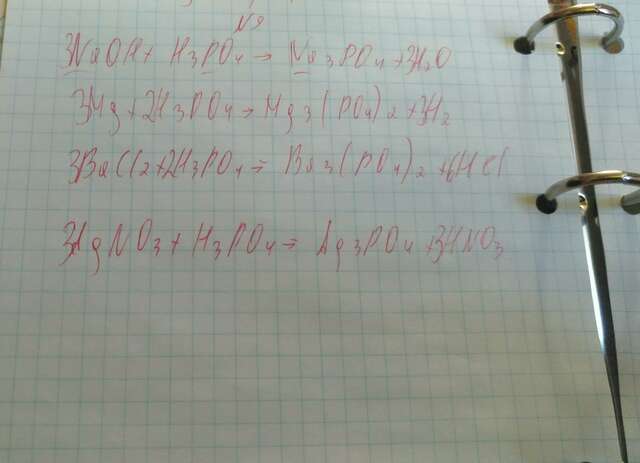 №9
3NaOH + H3PO4 → Na3PO4 + 3H2O
3Mg + 2H3PO4 → Mg3(PO4)2 + 3H2
3BaCl2 + 2H3PO4 → Ba3(PO4)2 + 6HCl
3AgNO3 + H3PO4 → Ag3PO4 + 3HNO3